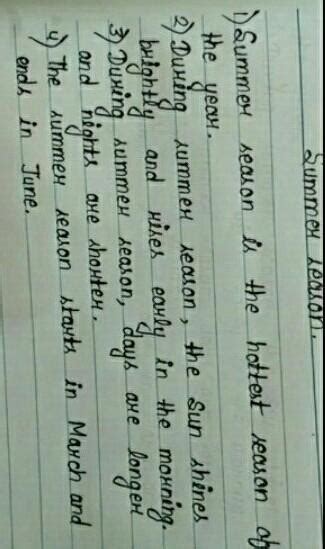 Summer season.
1) Summer season is the hottest season of
the year.
2) During summer season, the sun shines
brightly and rises early in the morning.
3) During summer season, days are longer
and nights are shorter.
4) The summer season starts in March and
ends in June.